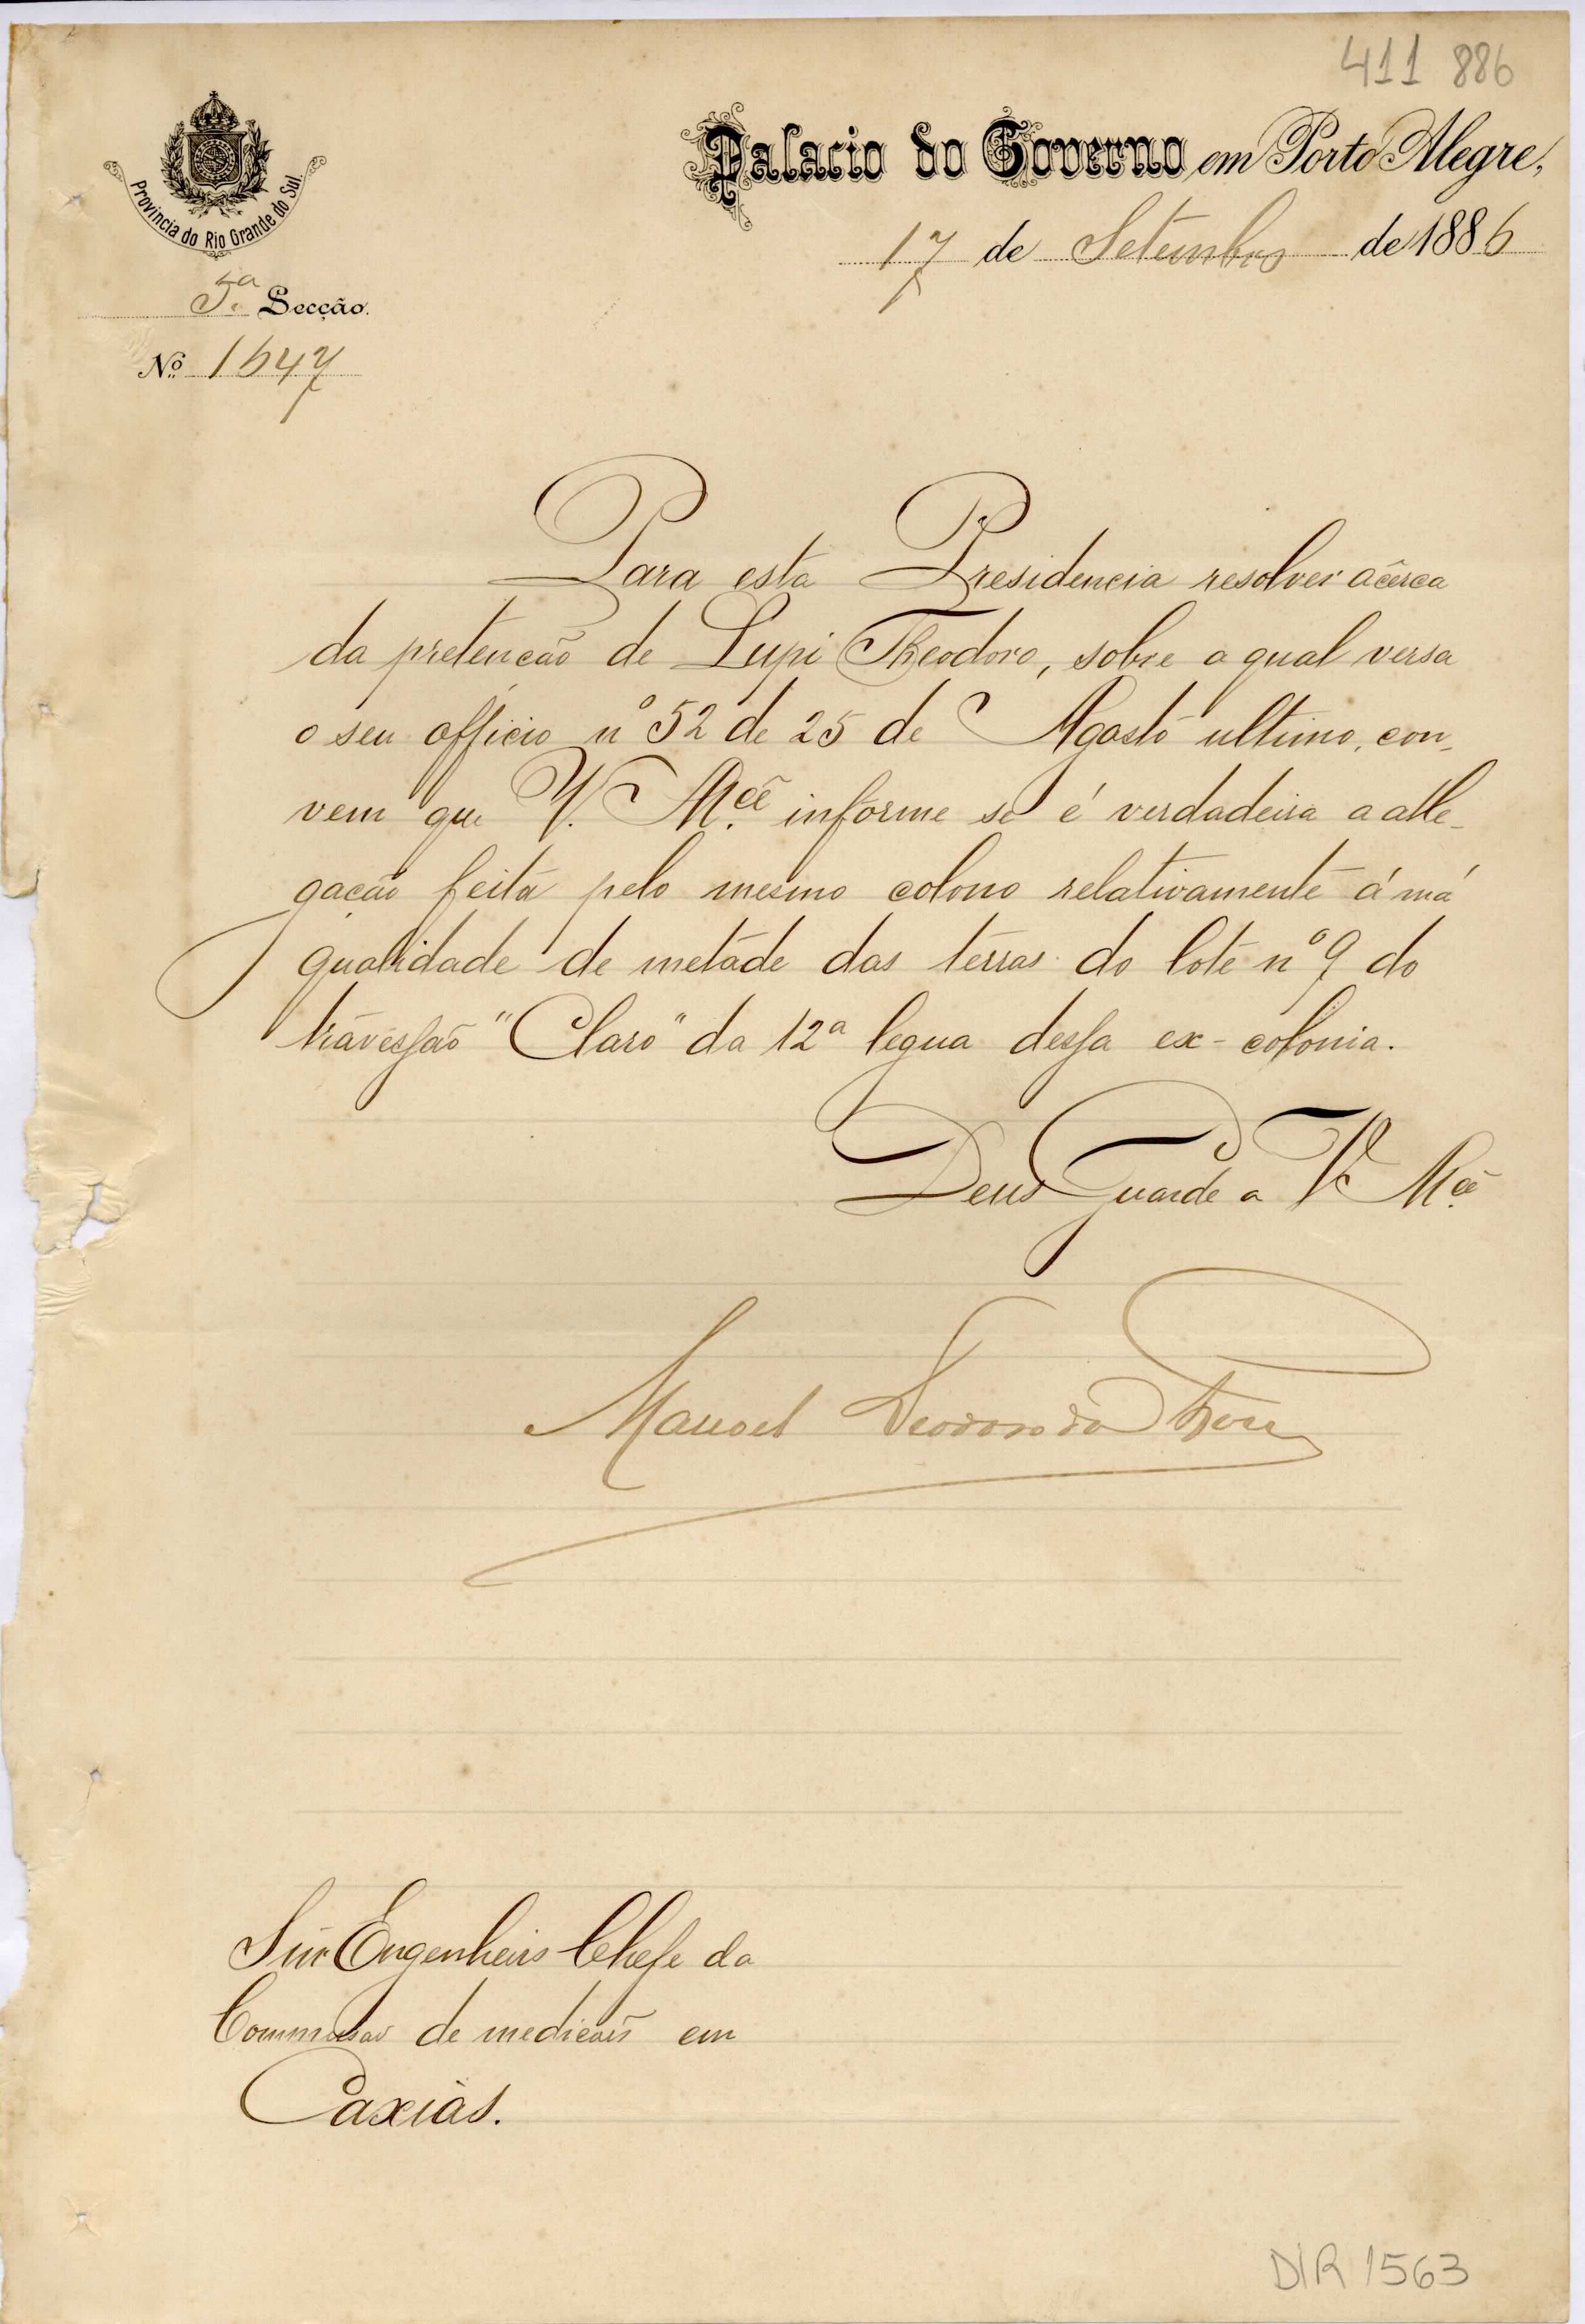 411 886
Palacio do Governo em Porto Alegre,
17 de Setembro de 1886
Provincia do Rio Grande do Sul
5ª Secção.
Nº 1647
Para esta Presidencia resolver ácerca
da pretenção de Lupi Theodoro, sobre a qual versa
o seu officio nº 52 de 25 de Agosto ultimo, con-
vem que V. Mcê informe se é verdadeira a alle-
gação feita pelo mesmo colono relativamente á má
qualidade de metade das terras do lote nº 9 do
travessão "Claro" da 12ª legua dessa ex-colonia.
Deus Guarde a V. Mcê
Manoel Deodoro da Fonca
Snr Engenheiro Chefe da
Commissão de medicões em
Caxias.
DIR 1563